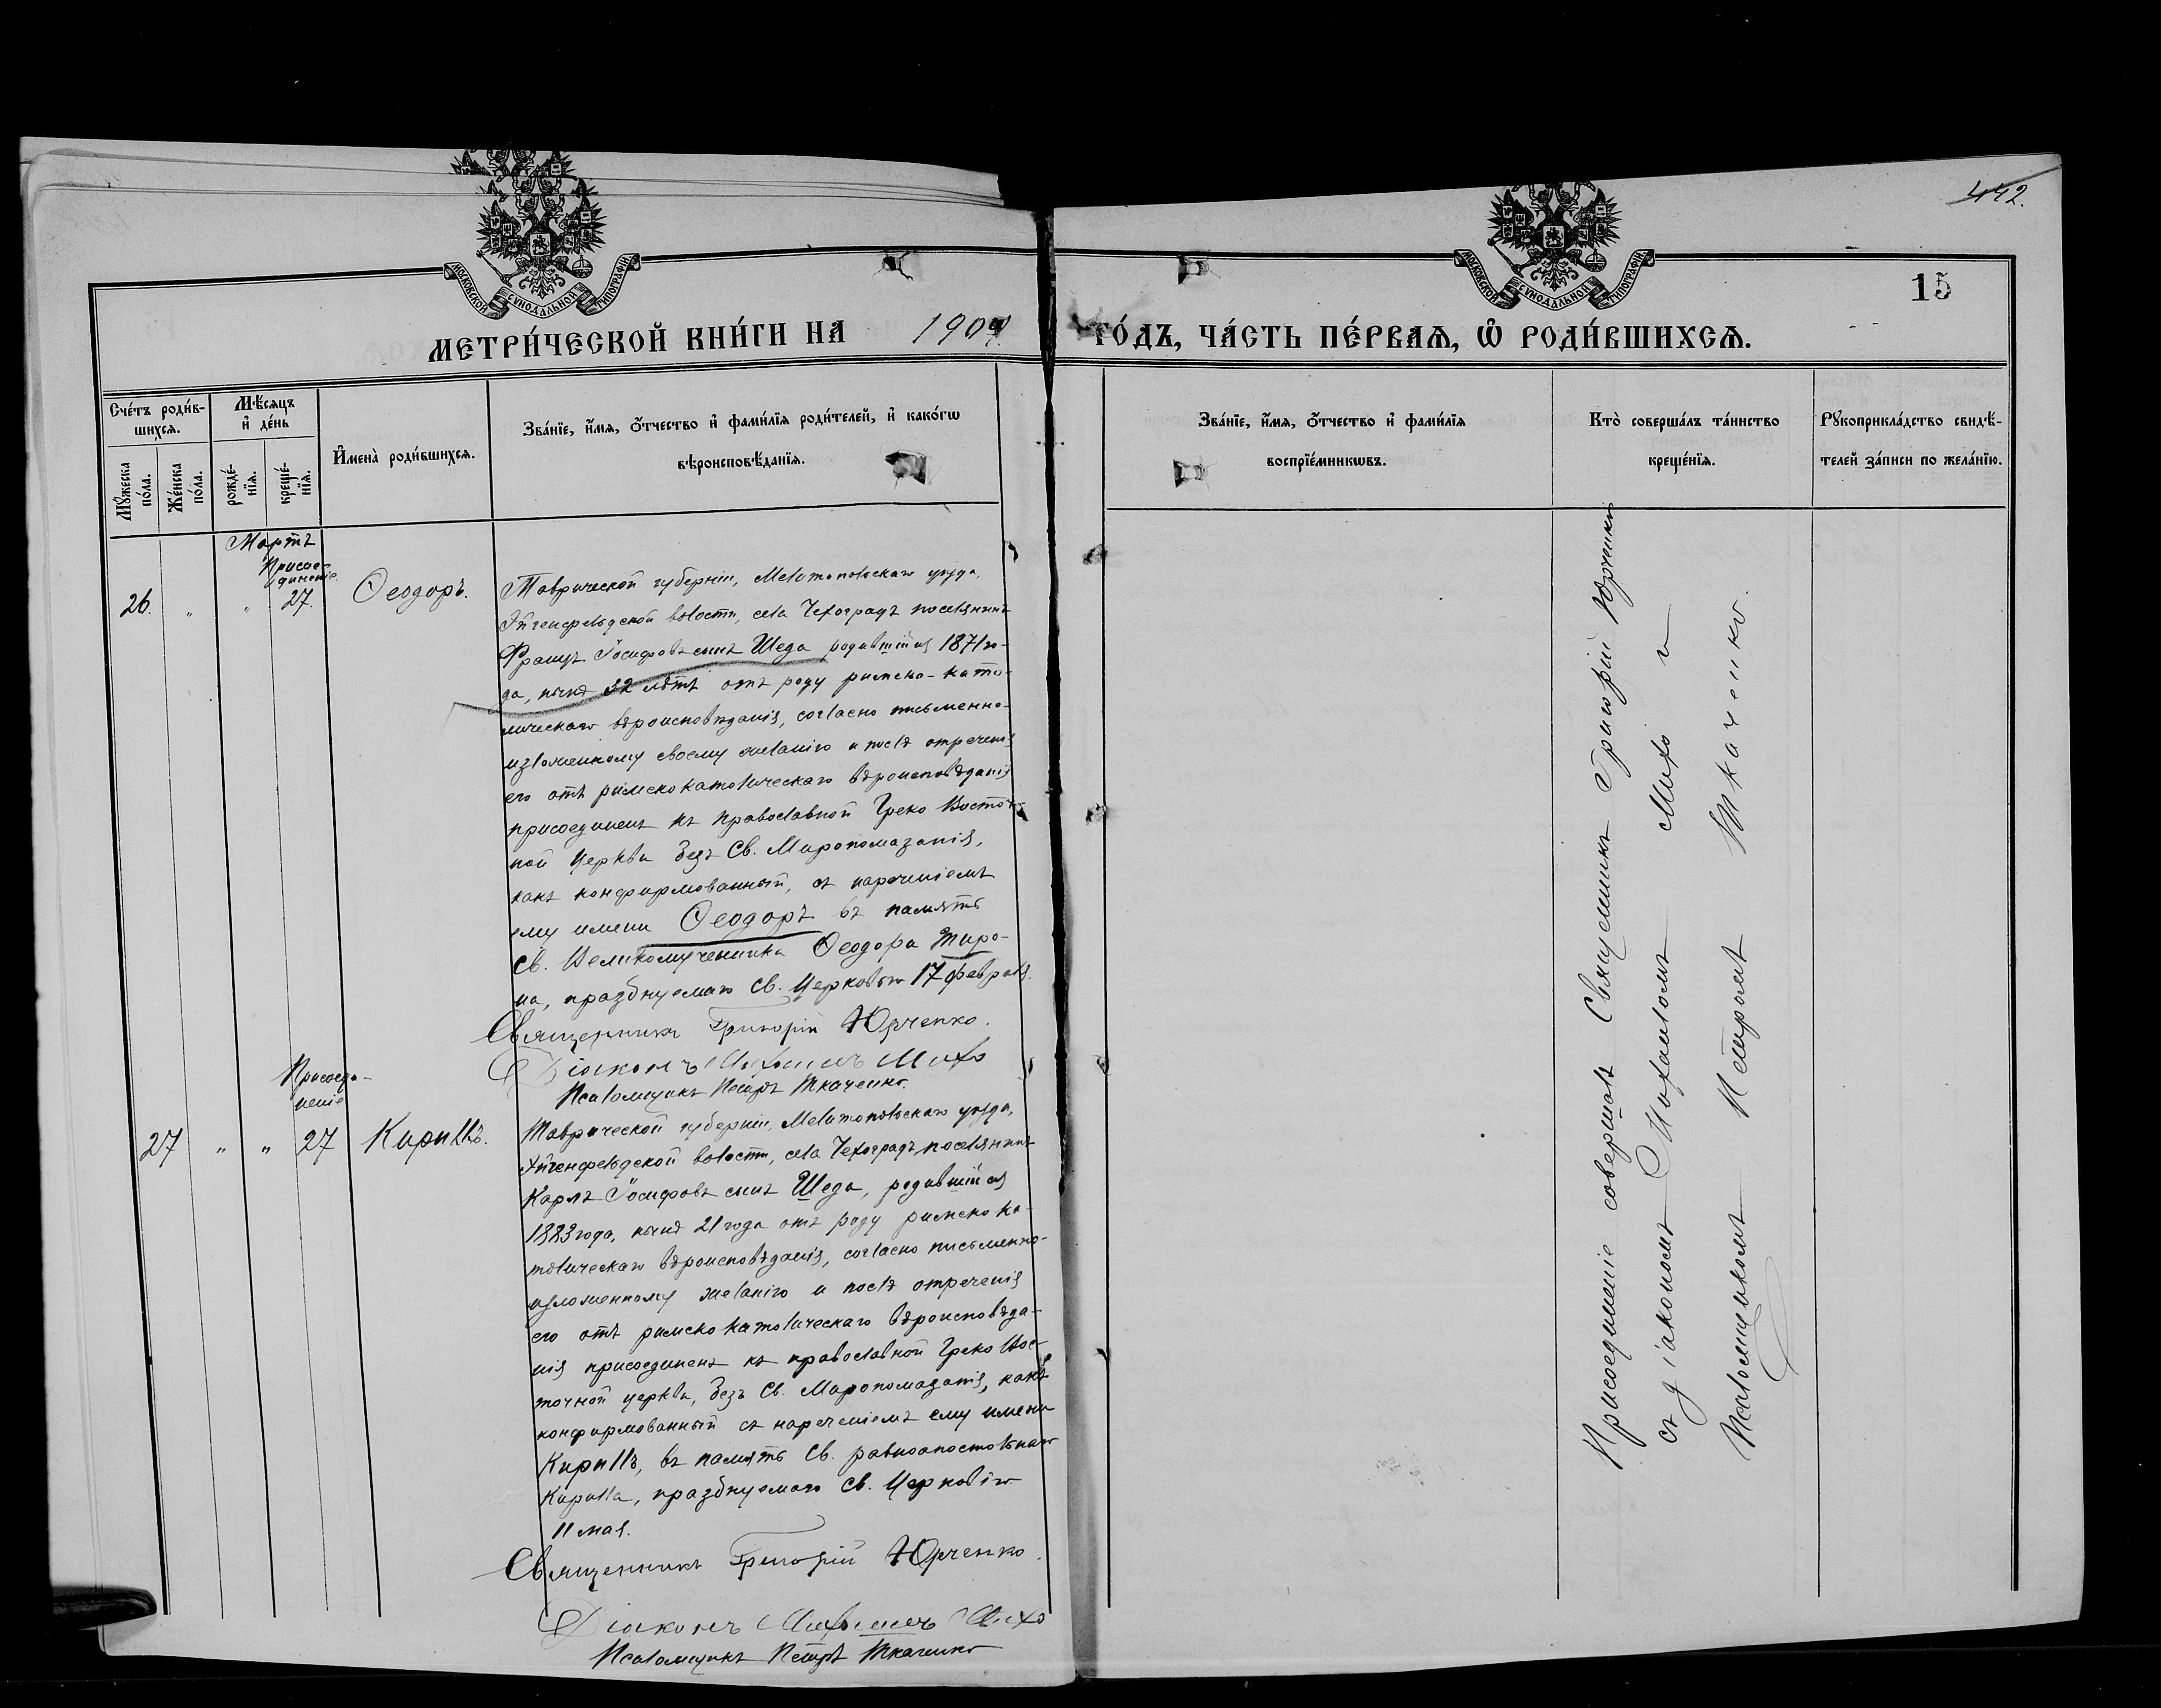 442.
15
МОСКОВСКОЙ СѴНОДАЛЬНОЙ ТИПОГРАФІИ
МОСКОВСКОЙ СѴНОДАЛЬНОЙ ТИПОГРАФІИ
МЕТРИ́ЧЕСКОЙ КНИ́ГИ НА 1904 ГО́ДЪ, ЧА́СТЬ ПЕ́РВАѦ, Ѽ РОДИ́ВШИХСѦ.
Сче́тъ роди́в-
шихсѧ.
Мꙋ́жеска по́ла.
Же́нска по́ла.
Мѣ́сѧцъ и҆ де́нь
рожде́-
нїѧ.
креще́-
нїѧ.
И҆мена̀ роди́вшихсѧ.
Зва́нїе, и҆́мѧ, ѻ҆́тчество и҆ фами́лїѧ роди́телей, и҆ како́гѡ
вѣроисповѣ́данїѧ.
Зва́нїе, и҆́мѧ, ѻ҆́тчество и҆ фами́лїѧ
воспрїе́мникѡвъ.
Кто̀ соверша́лъ та́инство
креще́нїѧ.
Рꙋкоприкла́дство свидѣ́-
телей за́писи по жела́нїю.
Мартъ
Присое-
диненіе
26. " " 27. Ѳеодоръ.
Таврической губерніи, Мелитопольскаго уѣзда,
Эйгенфельдской волости, села Чехоградъ поселянинъ
Францъ Іосифовъ сынъ Шеда родившійся 1871 го-
да, нынѣ 32 лѣтъ отъ роду римско-като-
лическаго вѣроисповѣданія, согласно письменно-
изложенному своему желанію и послѣ отреченія
его отъ римскокатолическаго вѣроисповѣданія
присоединенъ къ православной Греко Восточ-
ной Церкви безъ Св. Миропомазанія,
какъ конфирмованный, съ нареченіемъ
ему имени Ѳеодоръ въ память
Св. Великомученика Ѳеодора Тиро-
на, празднуемаго Св. Церковью 17 февраля.
Священникъ Григорій Юрченко.
Діаконъ Михаилъ Михо
Псаломщикъ Петръ Ткаченко.
Присоеди-
неніе
27 " " 27 Кириллъ.
Таврической губерніи, Мелитопольскаго уѣзда,
Эйгенфельдской волости, села Чехоградъ, поселянинъ
Карлъ Іосифовъ сынъ Шеда, родившійся
1883 года, нынѣ 21 года отъ роду римско ка-
толическаго вѣроисповѣданія, согласно письменно-
изложенному желанію и послѣ отреченія
его отъ римско католическаго вѣроисповѣда-
нія присоединенъ къ православной Греко Вос-
точной церкви, безъ Св. Миропомазанія, какъ
конфирмованный съ нареченіемъ ему имени
Кириллъ, въ память Св. равноапостольнаго
Кирилла, празднуемаго Св. Церковію
11 мая.
Священникъ Григорій Юрченко.
Діаконъ Михаилъ Михо
Псаломщикъ Петръ Ткаченко
Присоединеніе совершалъ Священникъ Григорій Юрченко
съ діакономъ Михаиломъ Михо и
Псаломщикомъ Петромъ Ткаченко.